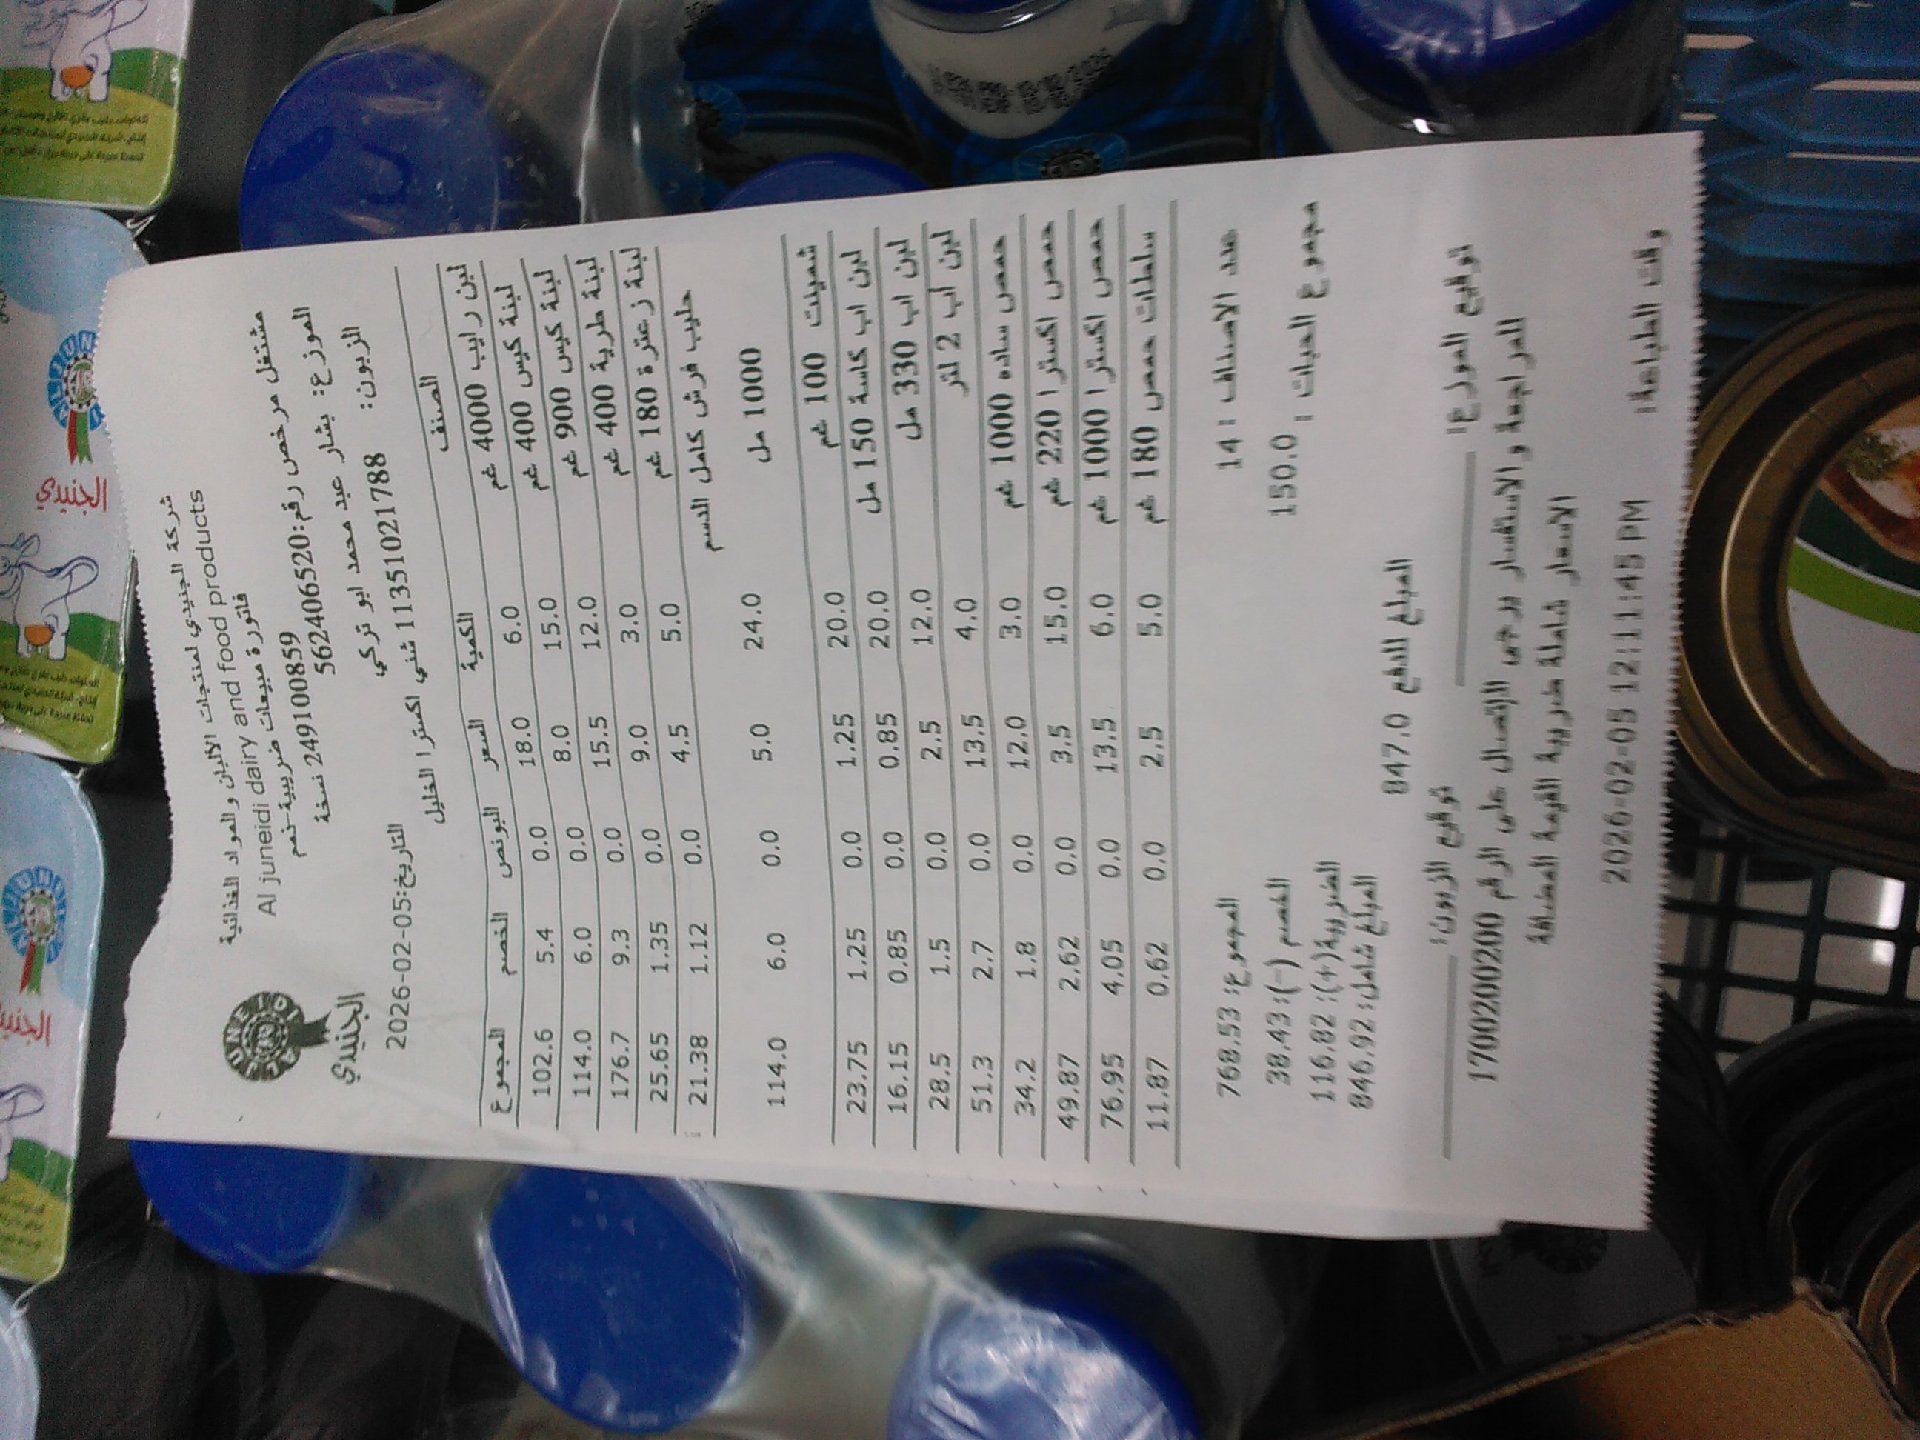 شركة الجنيدي لمنتجات الالبان والمواد الغذائية
Al juneidi dairy and food products
فاتورة مبيعات ضريبية-ذمم
مشتغل مرخص رقم:562406520 249100859 نسخة
الموزع: بشار عيد محمد ابو تركي
الزبون: 11351021788 شني اكسترا الخليل
التاريخ:2026-02-05
JUNEIDI
الجنيدي
الصنف الكمية السعر البونص الخصم المجموع
لبن رايب 4000 غم 6.0 18.0 0.0 5.4 102.6
لبنة كيس 400 غم 15.0 8.0 0.0 6.0 114.0
لبنة كيس 900 غم 12.0 15.5 0.0 9.3 176.7
لبنة طرية 400 غم 3.0 9.0 0.0 1.35 25.65
لبنة زعترة 180 غم 5.0 4.5 0.0 1.12 21.38
حليب فرش كامل الدسم
1000 مل 24.0 5.0 0.0 6.0 114.0
شمينت 100 غم 20.0 1.25 0.0 1.25 23.75
لبن اب كاسة 150 مل 20.0 0.85 0.0 0.85 16.15
لبن اب 330 مل 12.0 2.5 0.0 1.5 28.5
لبن اب 2 لتر 4.0 13.5 0.0 2.7 51.3
حمص ساده 1000 غم 3.0 12.0 0.0 1.8 34.2
حمص اكسترا 220 غم 15.0 3.5 0.0 2.62 49.87
حمص اكسترا 1000 غم 6.0 13.5 0.0 4.05 76.95
سلطات حمص 180 غم 5.0 2.5 0.0 0.62 11.87
عدد الاصناف : 14
المجموع: 768.53
مجموع الحبات : 150.0
الخصم (-): 38.43
الضريبة(+): 116.82
المبلغ شامل: 846.92
المبلغ للدفع 847.0
توقيع الموزع:
توقيع الزبون:
للمراجعة والاستفسار يرجى الإتصال على الرقم 1700200200
الاسعار شاملة ضريبة القيمة المضافة
وقت الطباعة: 2026-02-05 12:11:45 PM
الجنيدي
الجنيدي